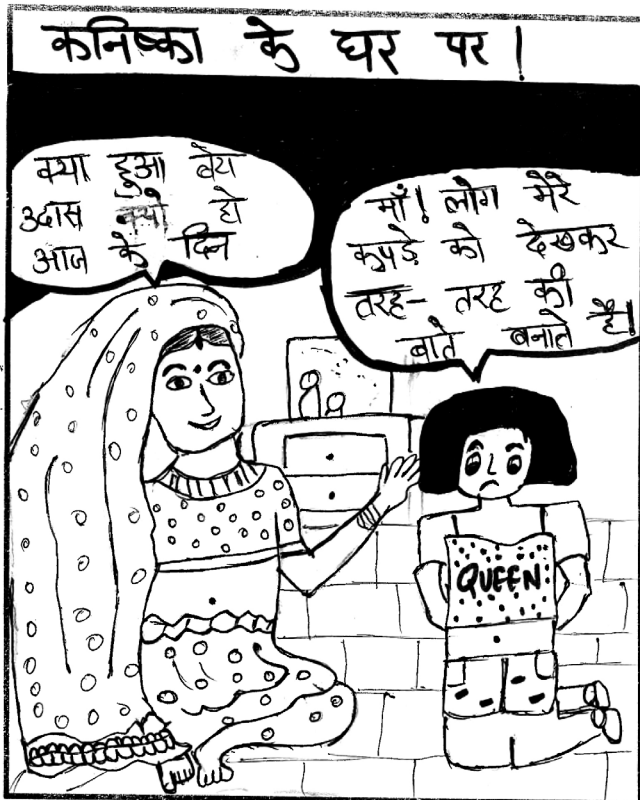 कनिष्का के घर पर !
क्या हुआ बेय
उदास क्यो हो
आज के दिन
माँ! लोग मेरे
कपड़े को देखकर
तरह- तरह की
बाते बनाते है।
QUEEN